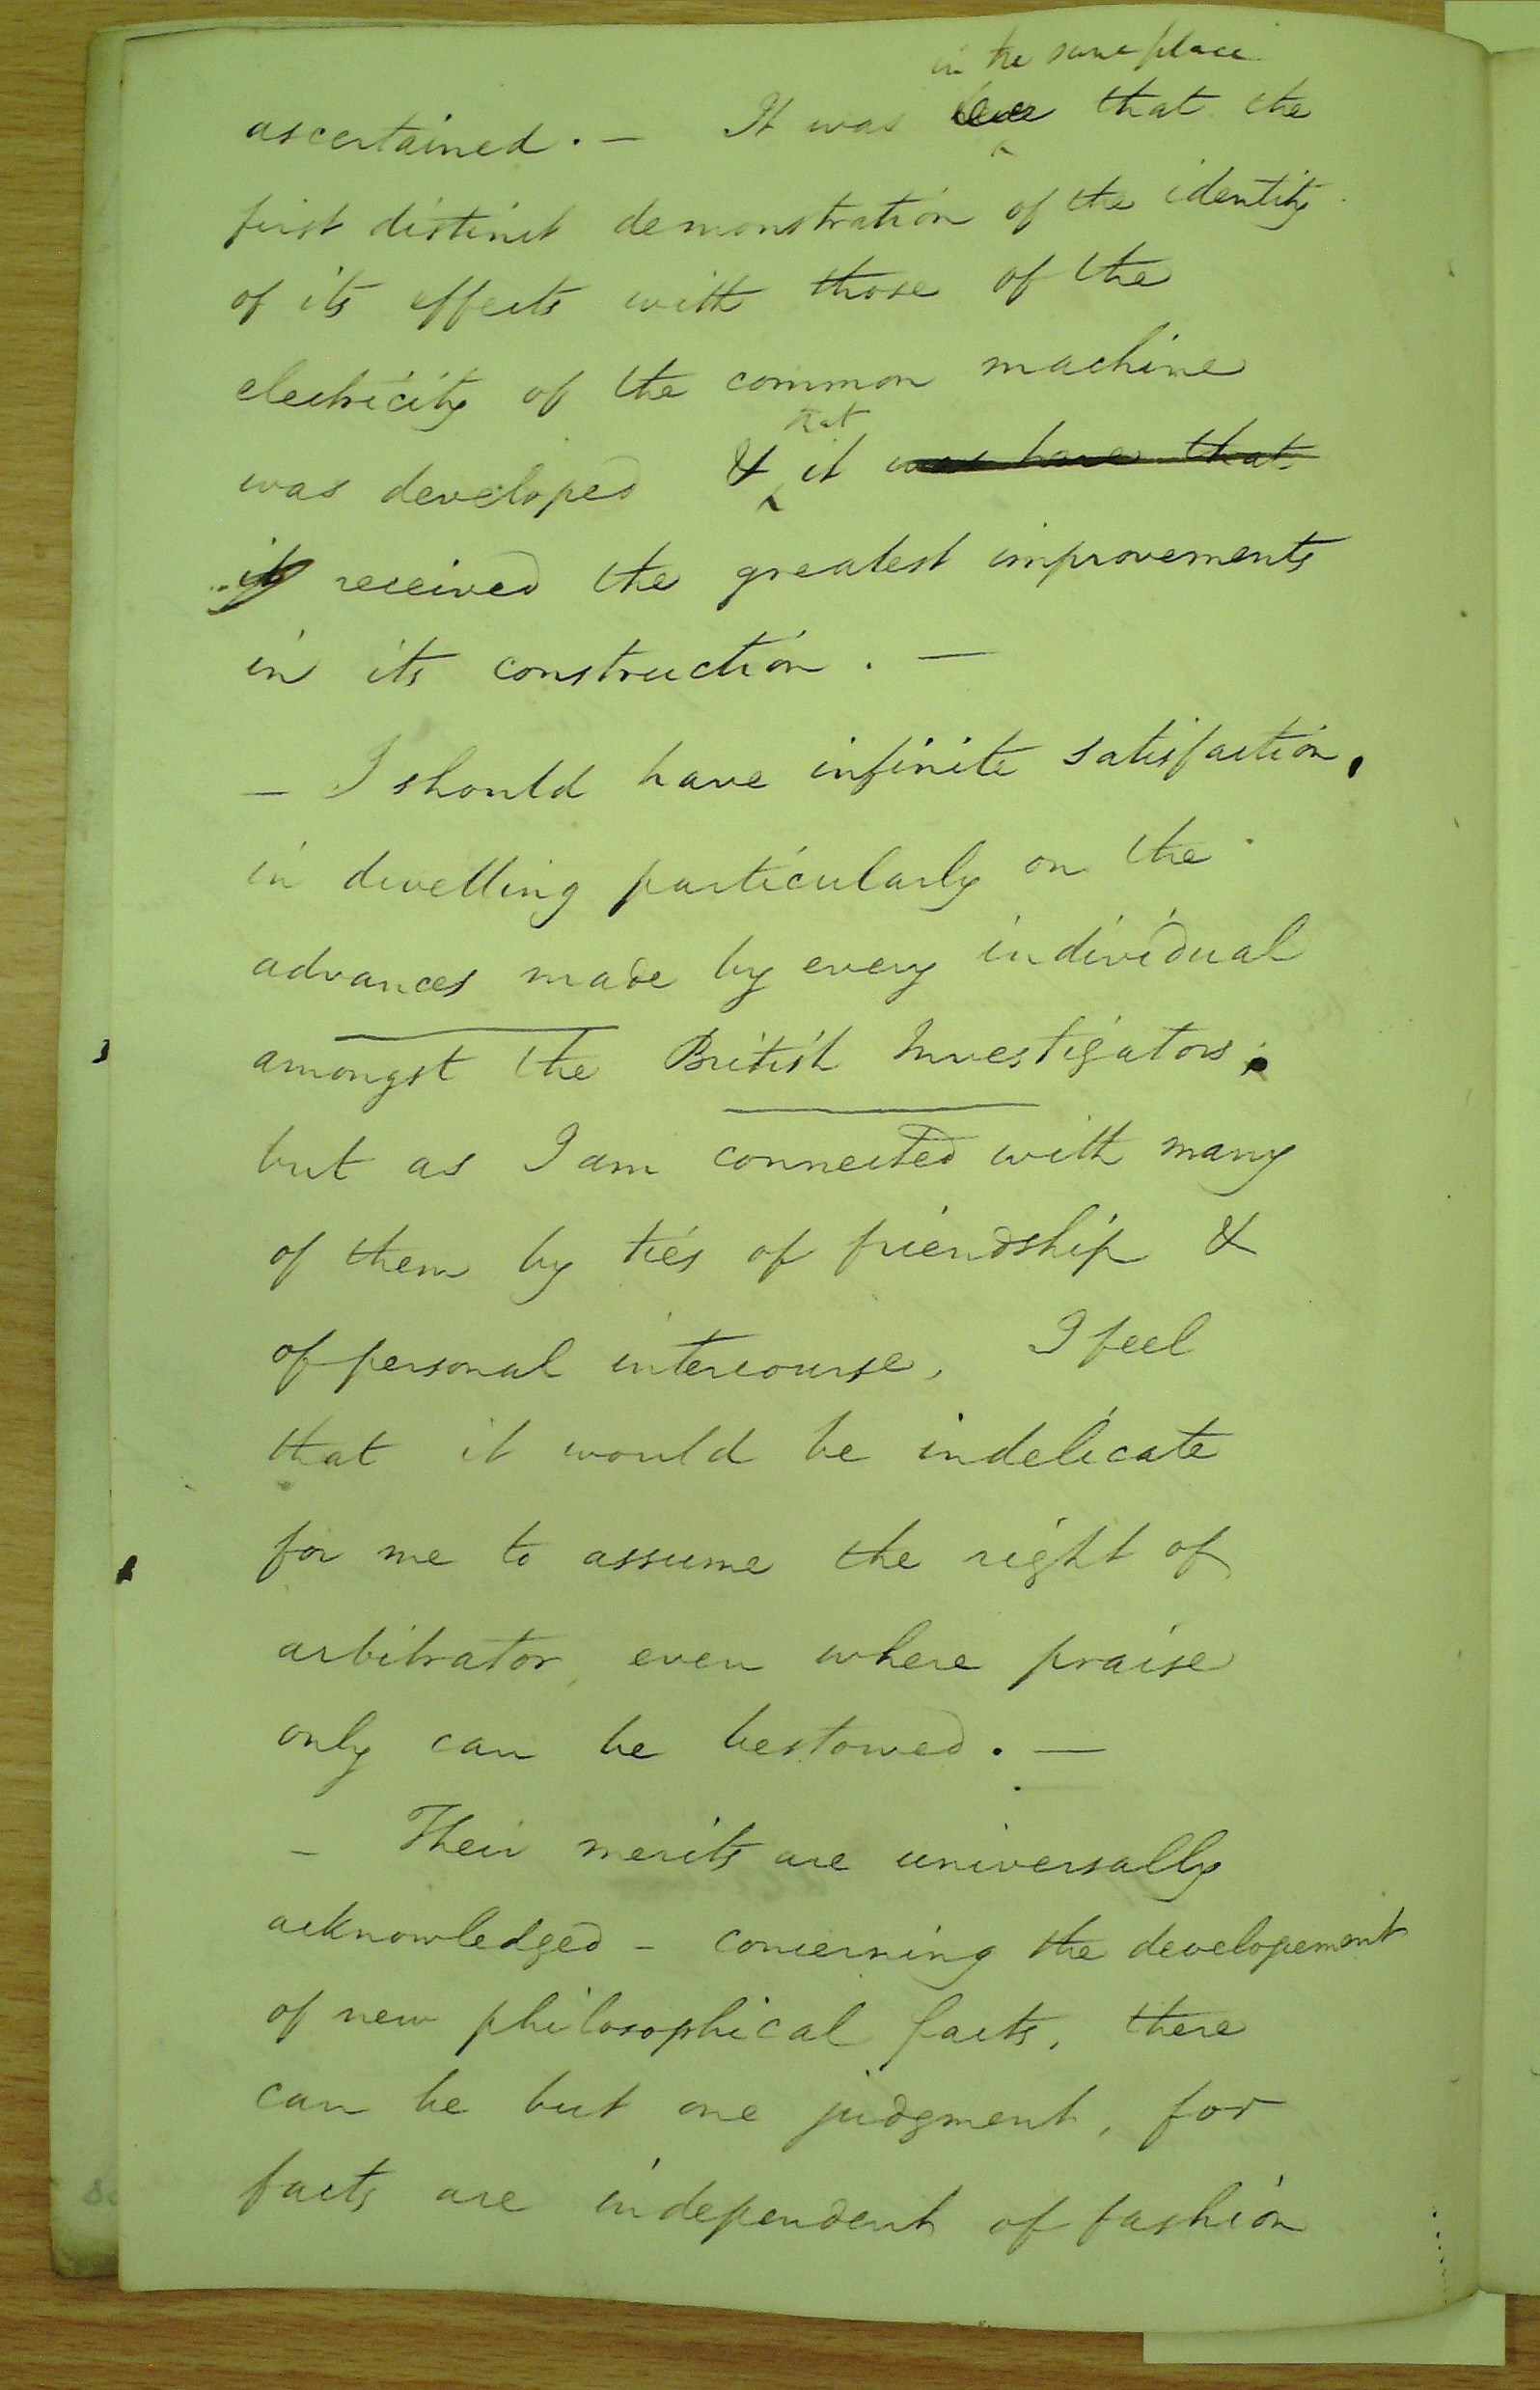 in the same place
ascertained. — It was here that the
first distinct demonstration of the identity
of its effects with those of the
electricity of the common machine
that
was developed & it was here that
it received the greatest improvements
in its construction. —
— I should have infinite satisfaction,
in dwelling particularly on the
advances made by every individual
amongst the British Investigators;
but as I am connected with many
of them by ties of friendship &
of personal intercourse, I feel
that it would be indelicate
for me to assume the right of
arbitrator, even where praise
only can be bestowed. —
— Their merits are universally
acknowledged — concerning the developement
of new philosophical facts, there
can be but one judgment, for
facts are independent of fashion